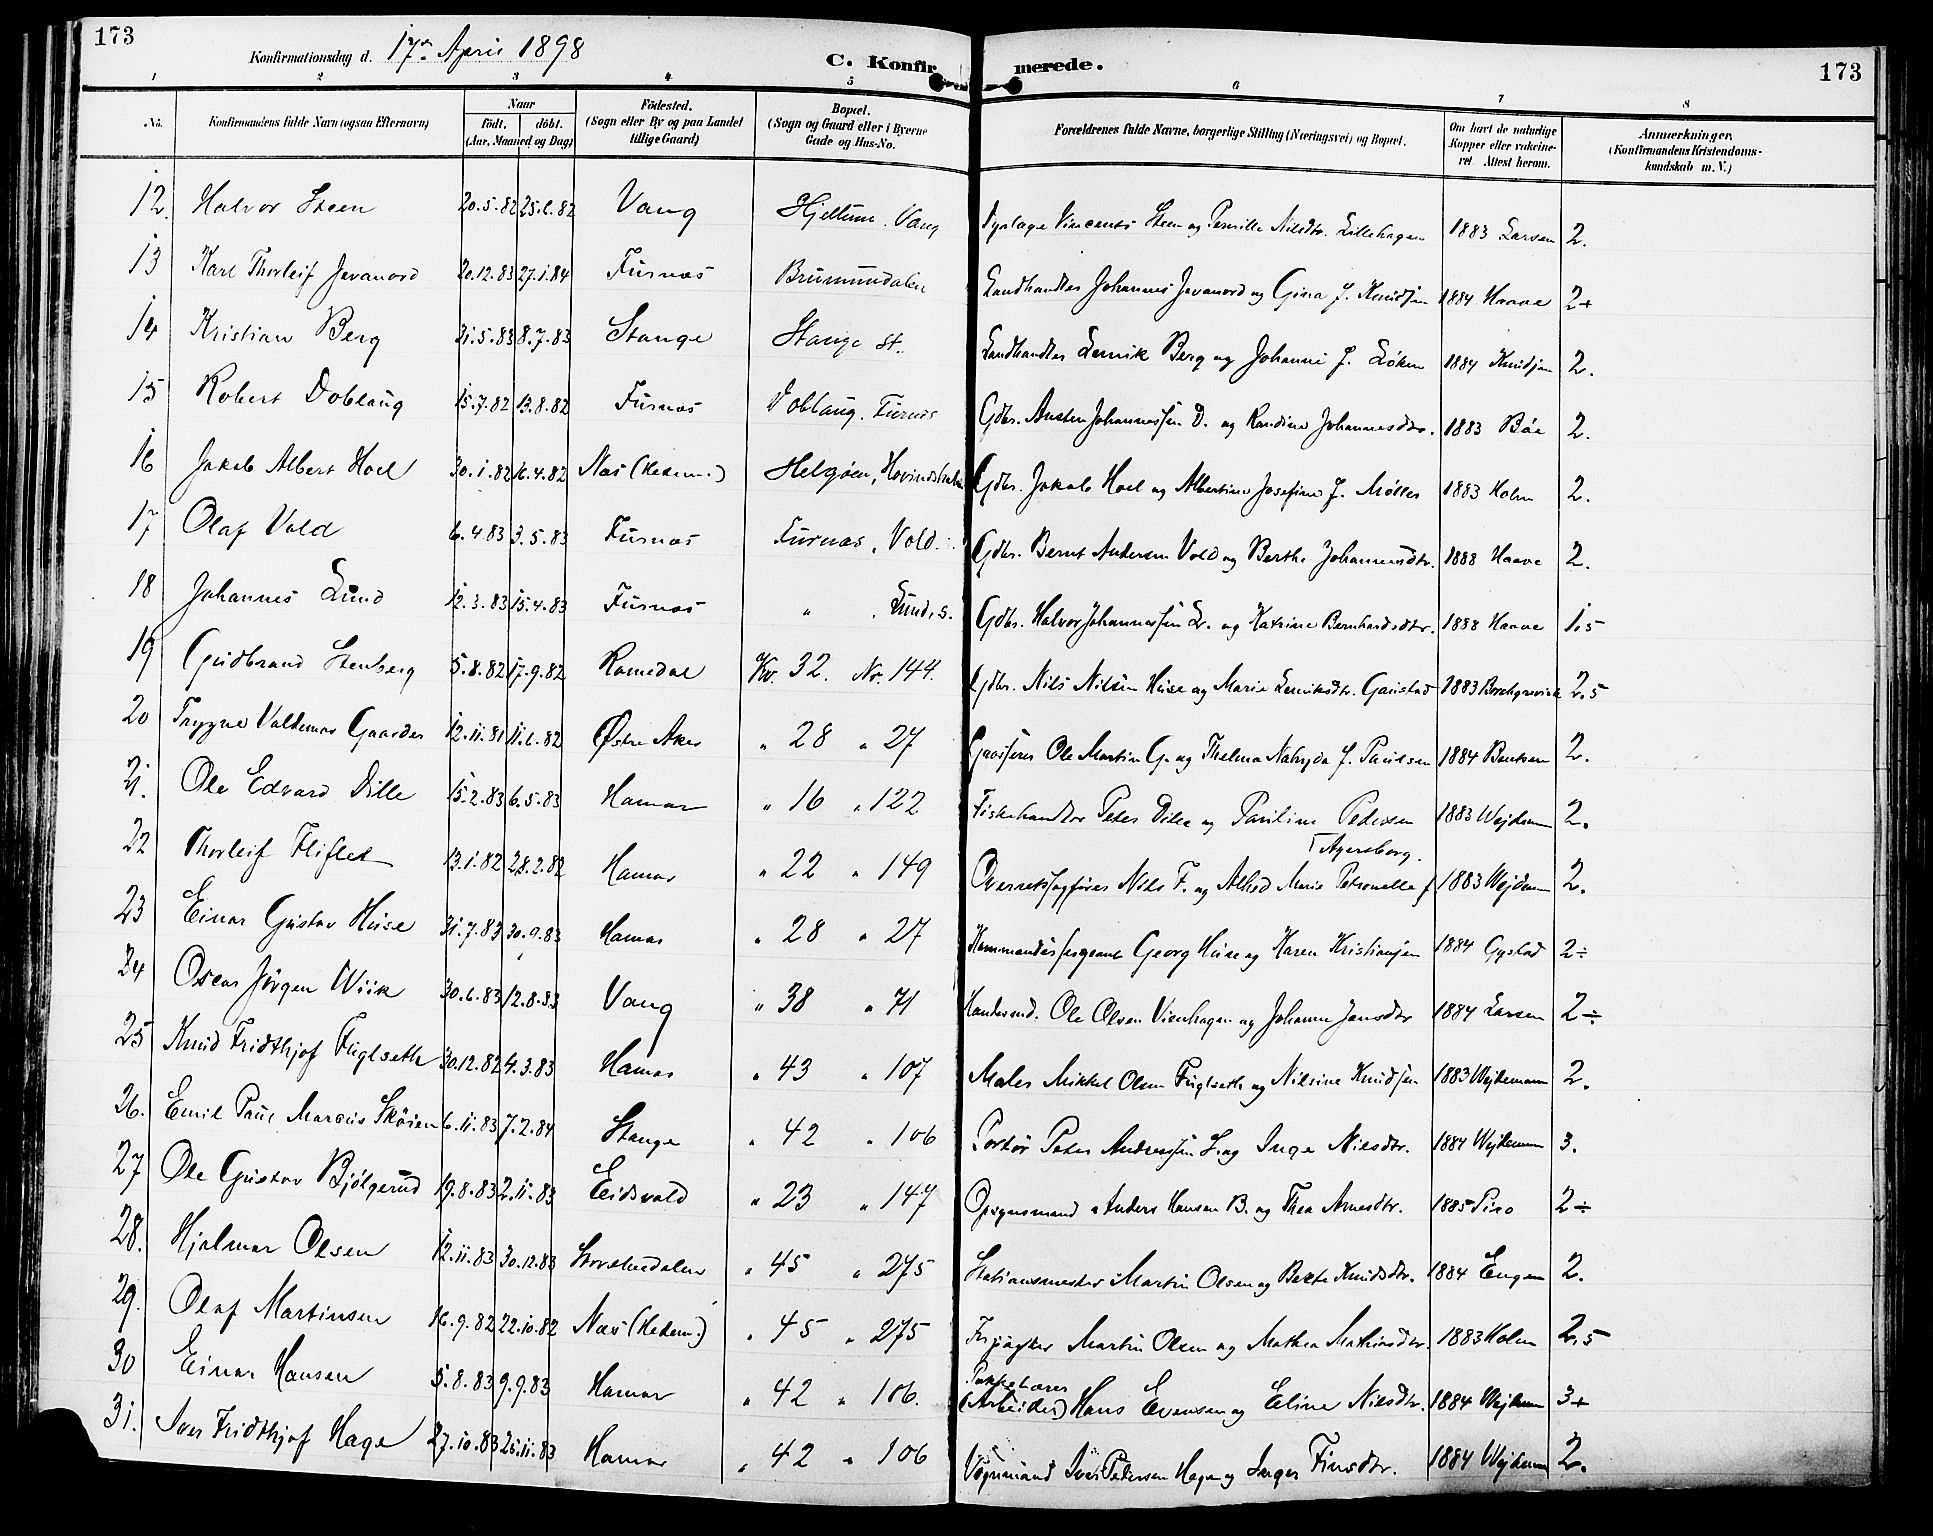 173
Konfirmationsdag d. 17de April 1898
C. Konfirmerede.
173
1 2 3 4 5 6 7 8
No. Konfirmandens fulde Navn (ogsaa Efternavn) Naar födt. döbt. (Aar, Maaned og Dag) Födested. (Sogn eller By og paa Landet tillige Gaard) Bopæl. (Sogn og Gaard eller i Byerne Gade og Hus-No. Forældrenes fulde Navne, borgerlige Stilling (Næringsvei) og Bopæl. Om havt de naturlige Kopper eller vakcineret. Attest herom. Anmærkninger. (Konfirmandens Kristendomskundskab m. V.)
12. Halvor Steen 20.5.82 25.6.82 Vang Hjellum. Vang Vincents Steen og Pernille Nilsdtr. Lillehagen 1883 Larsen 2.
13 Karl Thorleif Jevanord 20.12.83 27.1.84 Furnæs Brumundalen Landhandler Johannes Jevanord og Gina f. Knudsen 1884 Haave 2+
14 Kristian Berg 31.5.83 8.7.83 Stange Stange St. Landhandler Lenvik Berg og Johanne f. Löken 1884 Knudsen 2.
15 Robert Doblaug 15.7.82 13.8.82 Furnæs Doblaug. Furnæs Gdbr. Austen Johannessen D. og Randine Johannesdtr. 1883 Böe 2.
16 Jakob Albert Hoel 30.1.82 16.4.82 Næs (Hedem.) Helgöen, Gdbr. Jakob Hoel og Albertine Josefine f. Möller 1883 Holm 2.
17 Olaf Vold 6.4.83 3.5.83 Furnæs Furnæs, Vold. Gdbr. Bernt Andersen Vold og Berthe Johannesdtr. 1888 Haave 2.
18 Johannes Lund 12.3.83 15.4.83 Furnæs " Lund, s. Gdbr. Halvor Johannessen L. og Katrine Bernhardsdtr. 1888 Haave 1.5
19 Gudbrand Stenberg 5.8.82 17.9.82 Romedal Kv. 32. Nr. 144. Gdbr. Nils Nilsen Huse og Marie Lenviksdtr. Gaustad 1883 Borchgrevink 2.5
20 Trygve Valdemar Gaarder 12.11.81 11.6.82 Østre Aker " 28 " 27 Ole Martin G. og Thelma f. Paulsen 1884 Bentsen 2.
21. Ole Edvard Dille 15.2.83 6.5.83 Hamar " 16 " 122 Fiskehandler Peter Dille og Pauline Pedersen 1883 Wejdemann 2.
22 Thorleif Fliflet 13.1.82 28.2.82 Hamar " 22 " 149 Overretssagförer Nils F. og Alhed Marie Petronelle f. Agersborg. 1883 Wejdemann 2.
23 Einar Gustav Huse 31.7.83 30.9.83 Hamar " 28 " 27 Kommandersergeant Georg Huse og Karen Kristiansen 1884 Gystad 2÷
24 Oscar Jörgen Wiik 30.6.83 12.8.83 Vang " 38 " 71 Ole Olsen Vienhagen og Johanne Jensdtr 1884 Larsen 2÷
25 Knud Fridthjof Fuglseth 30.12.82 4.3.83 Hamar " 43 " 107 Maler Mikkel Olsen Fuglseth og Nilsine Knudsen 1883 Wejdemann 2.
26. Emil Paul Marcus Sköien 6.11.83 7.2.84 Stange " 42 " 106 Portör Peter Andreassen S. og Inga Nilsdtr. 1884 Wejdemann 3.
27 Ole Gustav Bjölgerud 19.8.83 2.11.83 Eidsvold " 23 " 147 Opsynsmand Anders Hansen B. og Thea Arnesdtr. 1885 2÷
28. Hjalmar Olsen 12.11.83 30.12.83 Storelvedalen " 45 " 275 Stationsmester Martin Olsen og Berte Knudsdtr. 1884 Engen 2.
29. Olaf Martinsen 16.9.82 22.10.82 Næs (Hedem.) " 45 " 275 Forpagter Martin Olsen og Mathea Mathiasdtr. 1883 Holm 2.5
30 Einar Hansen 5.8.83 9.9.83 Hamar " 42 " 106. Pakkebærer (Arbeider) Hans Evensen og Eline Nilsdtr. 1884 Wejdemann 3+
31. Iver Fridthjof Hage 27.10.83 25.11.83 Hamar " 42 " 106 Vognmand Iver Pedersen Hage og Inger Finsdtr. 1884 Wejdemann 2.